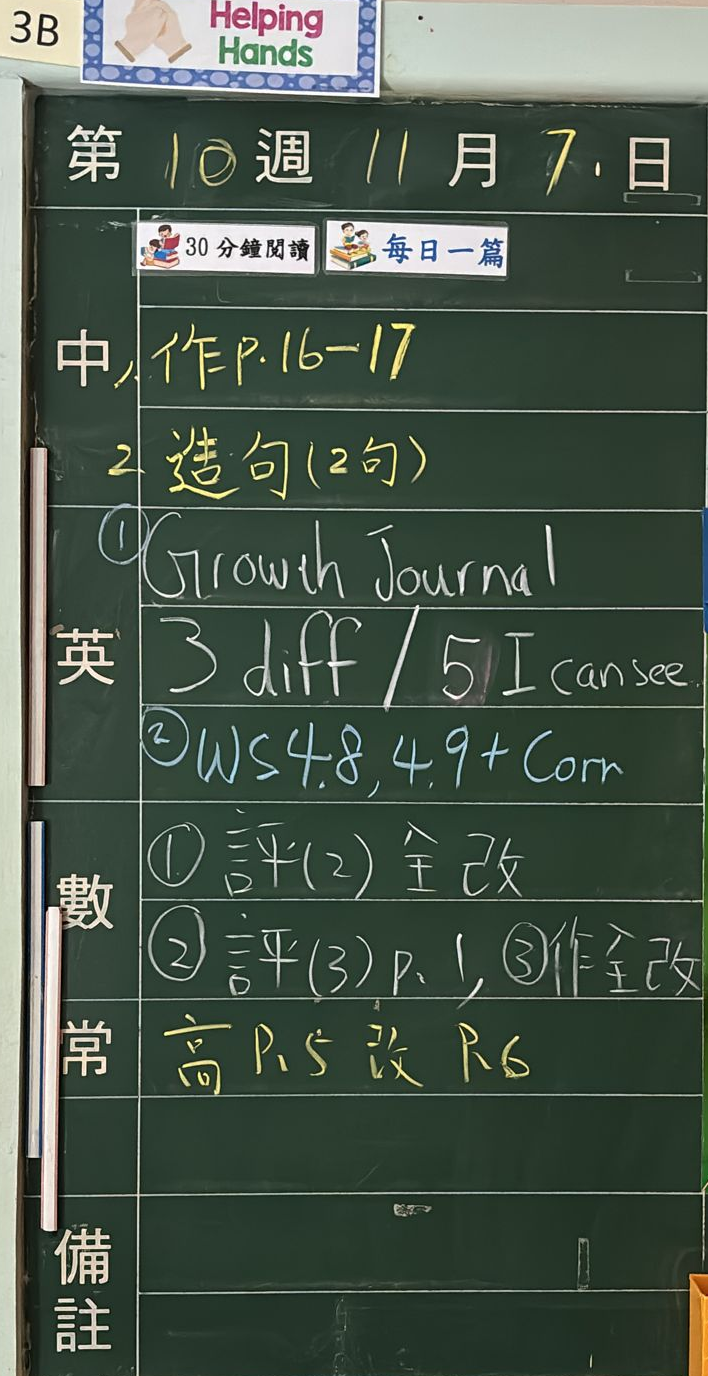 3B
Helping
Hands
第 10 週 11 月 7. 日
30 分鐘閱讀 每日一篇
中 1. 作P.16-17
2. 造句(2句)
① Growth Journal
英 3 diff / 5 I can see
② WS 4.8, 4.9 + Corr
數 ① 評(2) 全改
② 評(3) P.1, ③作全改
常 高 P.5 改 P.6
備
註